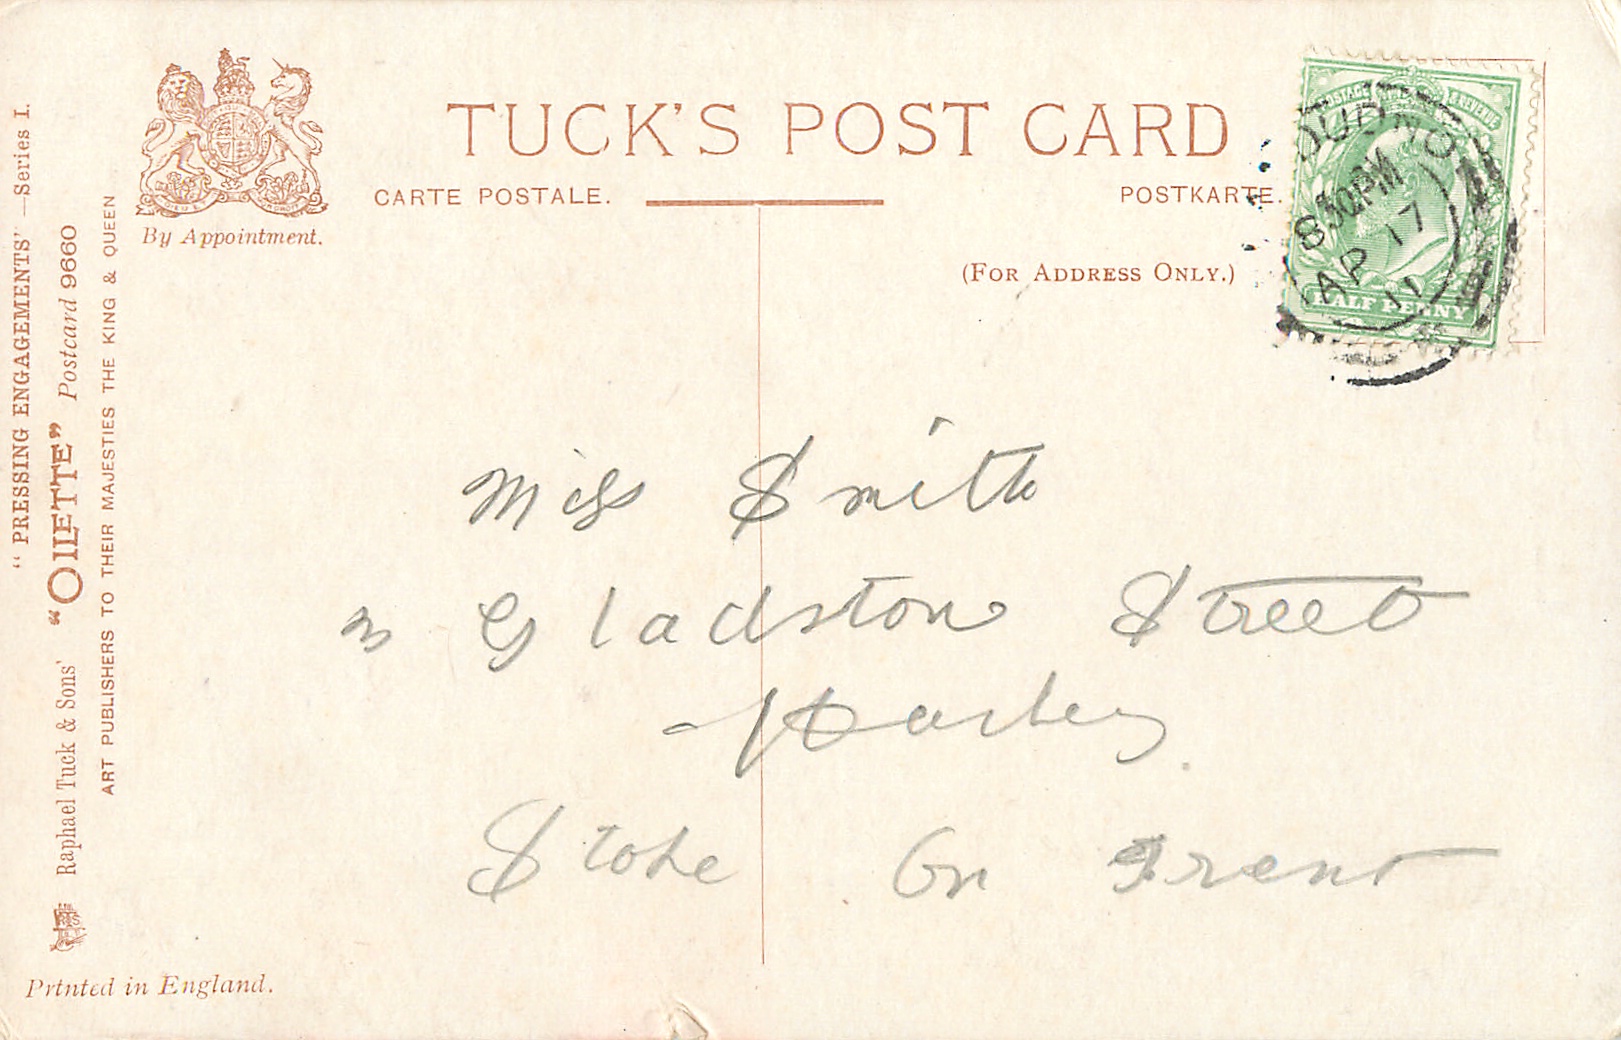 TUCK'S POST CARD
CARTE POSTALE.
POSTKARTE.
(FOR ADDRESS ONLY.)
By Appointment.
"PRESSING ENGAGEMENTS" — Series I.
Raphael Tuck & Sons' "OILETTE" Postcard 9660
ART PUBLISHERS TO THEIR MAJESTIES THE KING & QUEEN
Printed in England.
POSTAGE & REVENUE
HALF PENNY
8 30PM
AP 17
11
Miss Smith
Gladston Street
Stoke On Trent